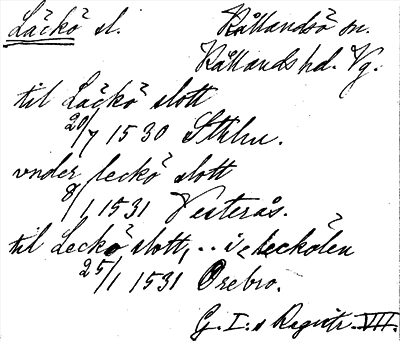 Läckö sl. Kållandsö sn.
Kållands hd. Vg.
til Läckö slott
20/7 1530 Sthlm.
vnder leckö slott
8/1 1531 Vesterås.
til Leckö slott, .. i leckölen
25/1 1531 Örebro.
G. I:s Registr. VII.